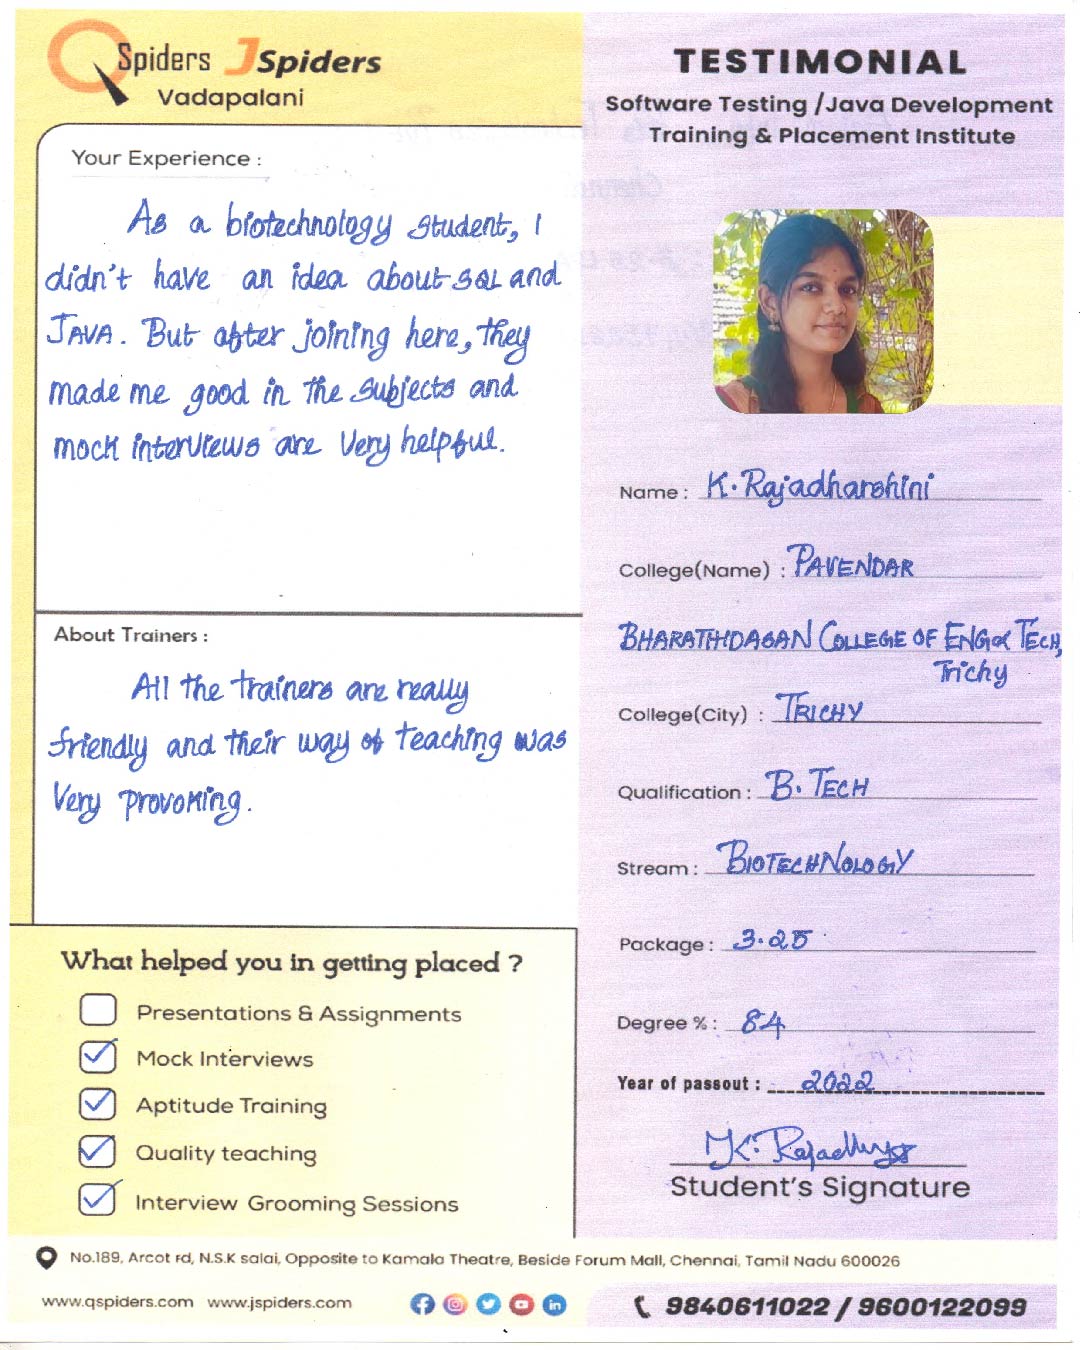 QSpiders JSpiders
Vadapalani
Your Experience :
As a biotechnology student, I
didn't have an idea about SQL and
JAVA. But after joining here, they
made me good in the subjects and
mock interviews are very helpful.
About Trainers :
All the trainers are really
friendly and their way of teaching was
very provoking.
What helped you in getting placed ?
Presentations & Assignments
Mock Interviews
Aptitude Training
Quality teaching
Interview Grooming Sessions
TESTIMONIAL
Software Testing /Java Development
Training & Placement Institute
Name : K. Rajadharshini
College(Name) : PAVENDAR
BHARATHIDASAN COLLEGE OF ENG & TECH,
Trichy
College(City) : TRICHY
Qualification : B. TECH
Stream : BIOTECHNOLOGY
Package : 3.25
Degree % : 84
Year of passout : 2022
K. Rajadhars
Student's Signature
No.189, Arcot rd, N.S.K salai, Opposite to Kamala Theatre, Beside Forum Mall, Chennai, Tamil Nadu 600026
www.qspiders.com www.jspiders.com
9840611022 / 9600122099